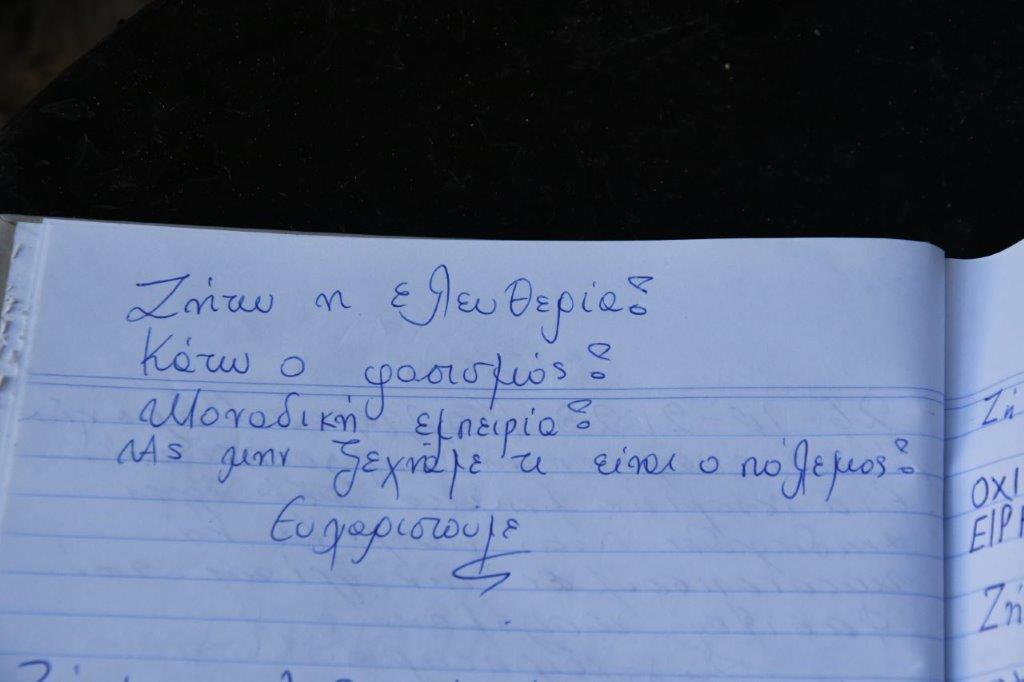 Ζήτω η ελευθερία!
Κάτω ο φασισμός!
Μοναδική εμπειρία!
Ας μην ξεχνάμε τι είναι ο πόλεμος!
Ευχαριστούμε
Ζή
ΟΧΙ
ΕΙΡΗ
Ζή